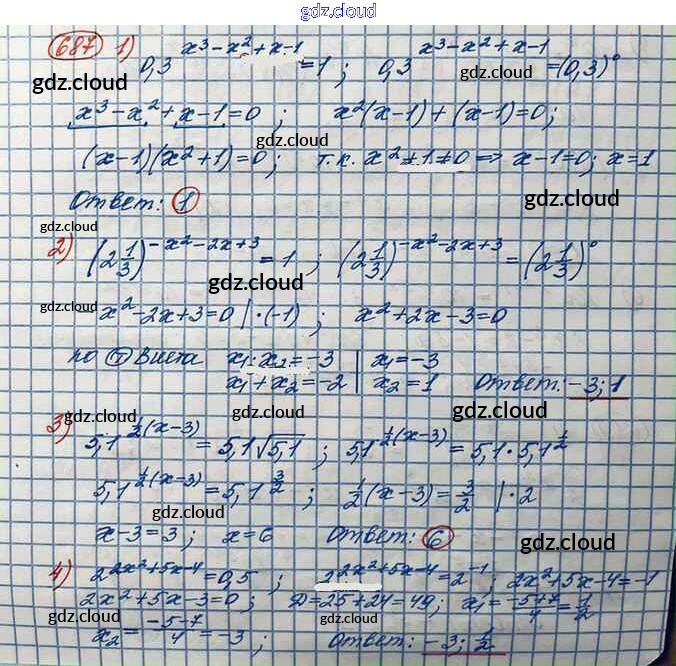 gdz.cloud
687 1) 0,3^(x³-x²+x-1) = 1 ; 0,3^(x³-x²+x-1) = (0,3)⁰
gdz.cloud gdz.cloud
x³-x²+x-1=0 ; x²(x-1)+(x-1)=0;
gdz.cloud
(x-1)(x²+1)=0; т.к. x²+1≠0 => x-1=0; x=1
Ответ: 1
gdz.cloud gdz.cloud
2) (2 1/3)^(-x²-2x+3) = 1 ; (2 1/3)^(-x²-2x+3) = (2 1/3)⁰
gdz.cloud gdz.cloud
-x²-2x+3=0 |·(-1) ; x²+2x-3=0
по Т Виета x₁·x₂=-3 | x₁=-3
x₁+x₂=-2 | x₂=1 Ответ: -3; 1
gdz.cloud gdz.cloud gdz.cloud
3) 5,1^(1/2(x-3)) = 5,1√5,1 ; 5,1^(1/2(x-3)) = 5,1·5,1^(1/2)
5,1^(1/2(x-3)) = 5,1^(3/2) ; 1/2(x-3)=3/2 |·2
gdz.cloud gdz.cloud
x-3=3; x=6 Ответ: 6
gdz.cloud
4) 2^(2x²+5x-4) = 0,5 ; 2^(2x²+5x-4) = 2⁻¹; 2x²+5x-4=-1
2x²+5x-3=0; D=25+24=49; x₁=(-5+7)/4=1/2
gdz.cloud gdz.cloud gdz.cloud
x₂=(-5-7)/4=-3; Ответ: -3; 1/2